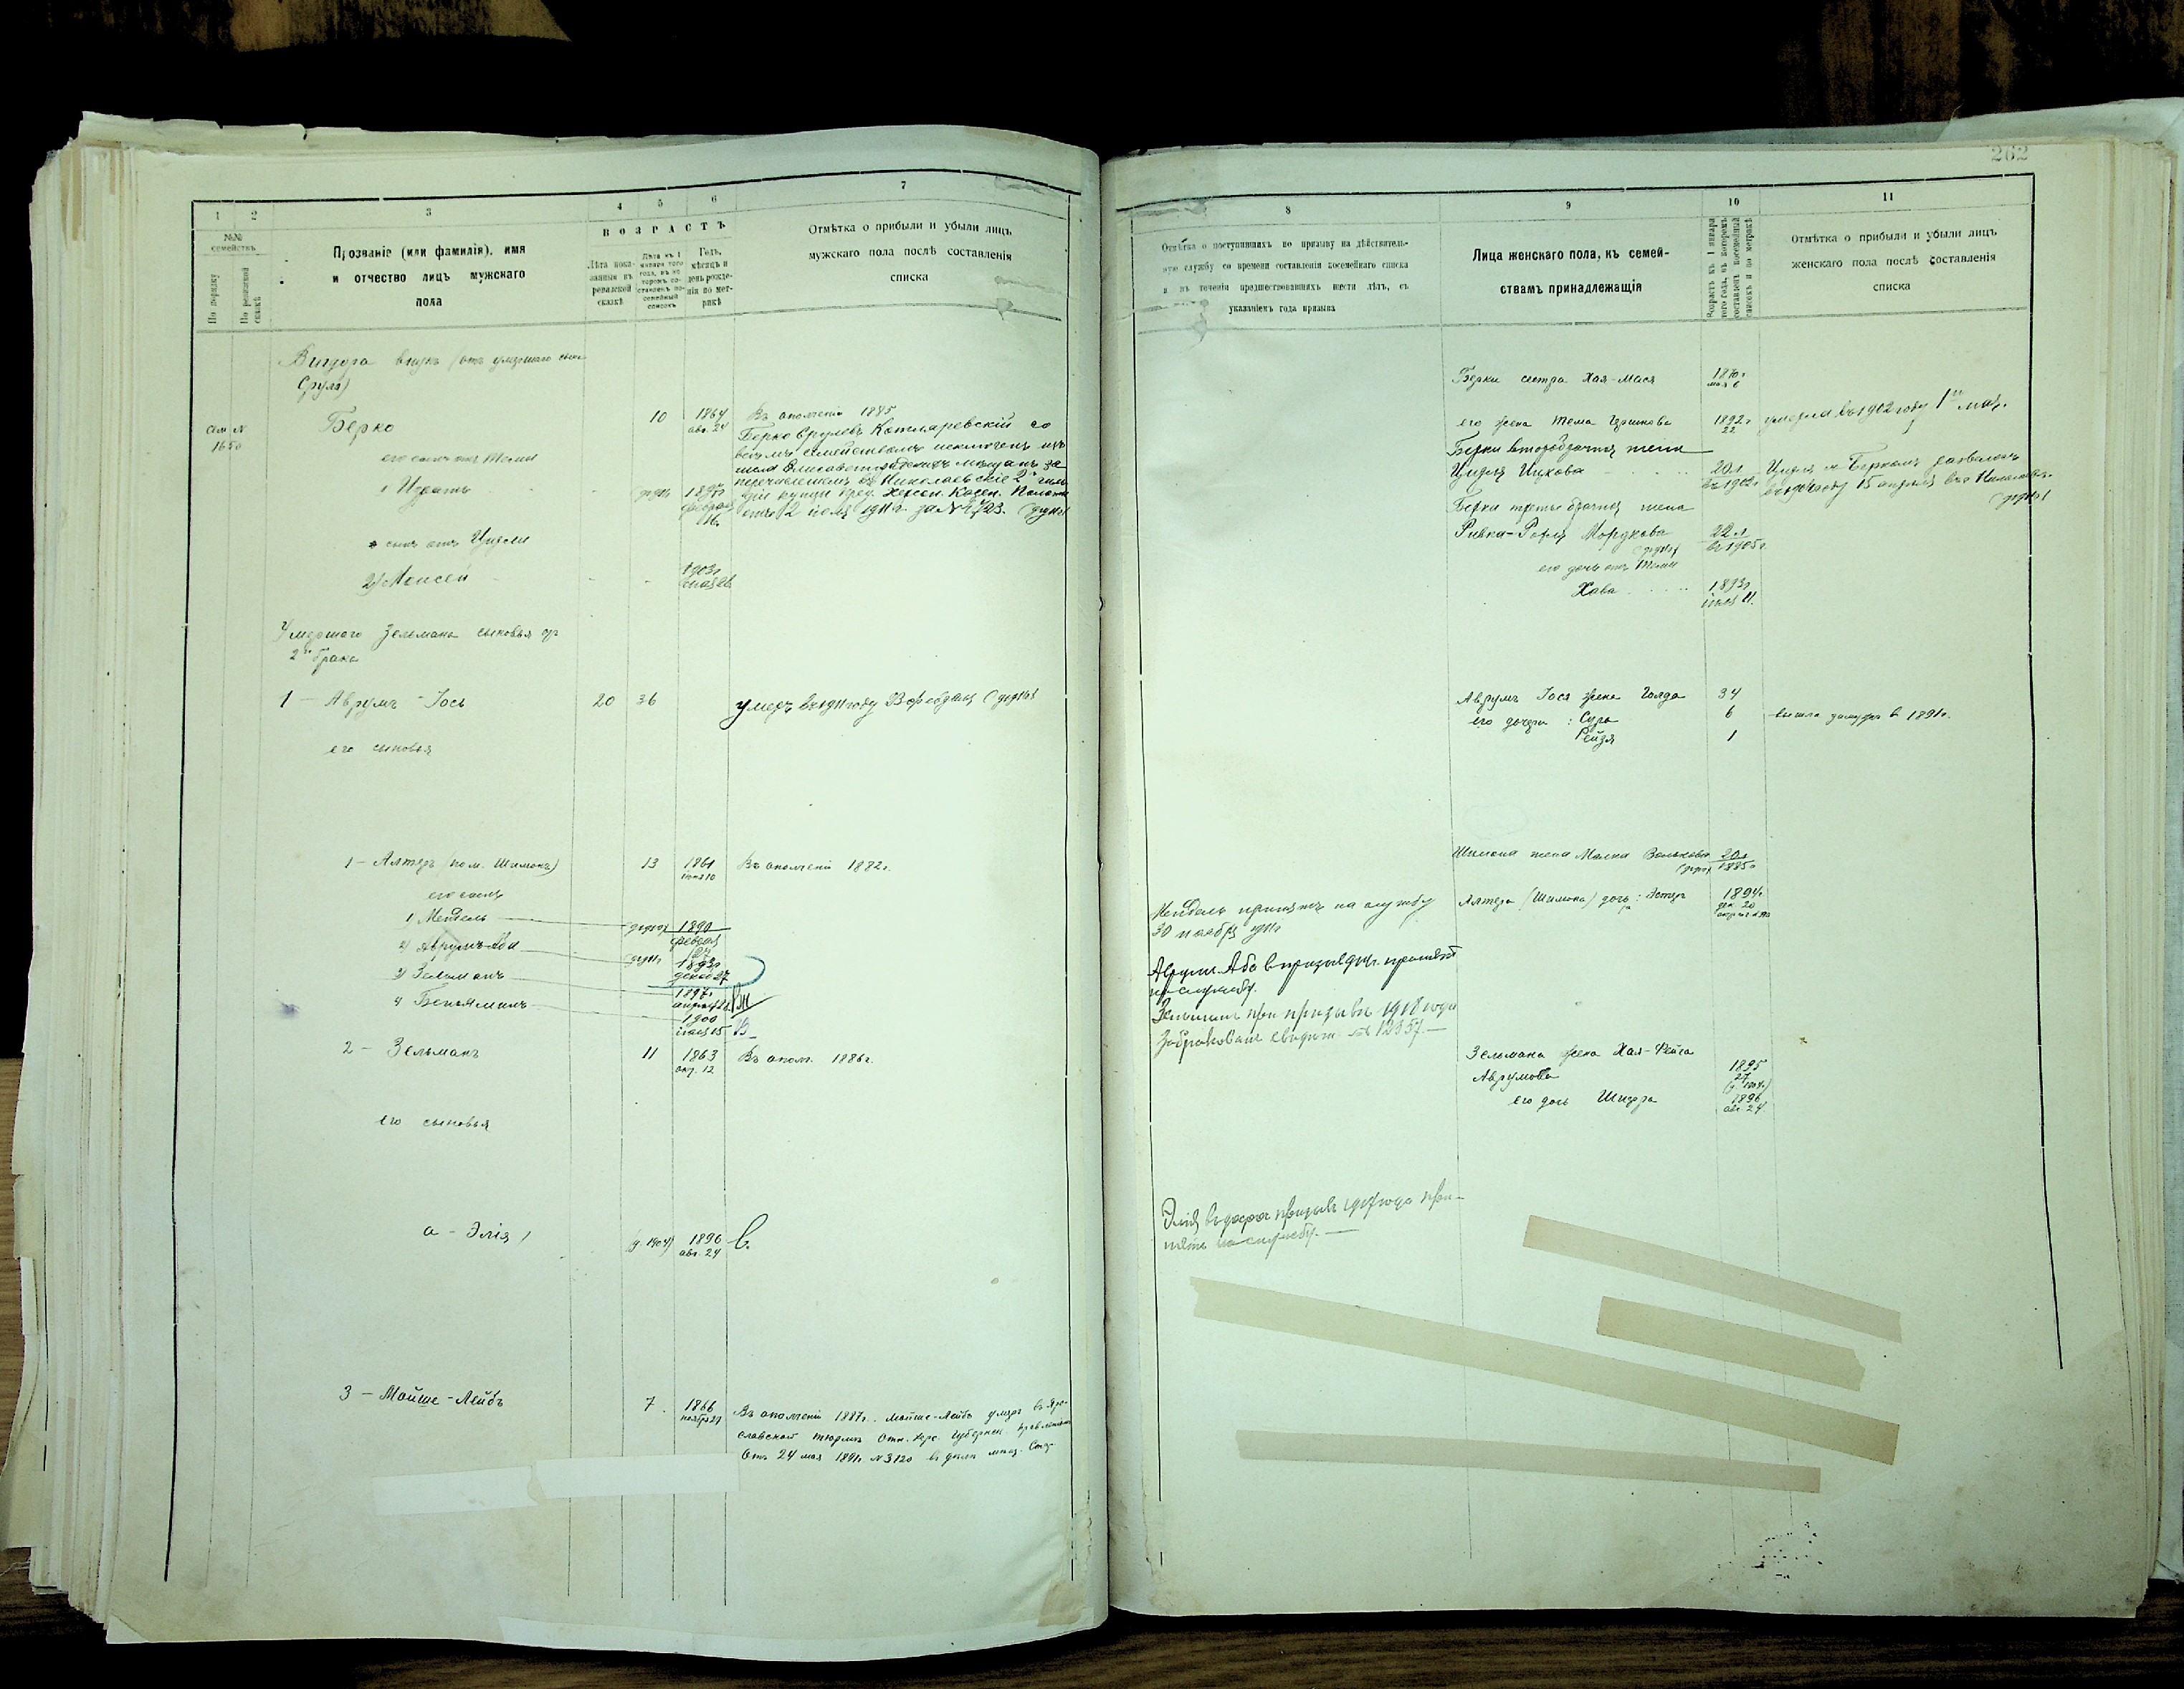 262
1 2 3 4 5 6 7
№№ семействъ
По порядку
По ревизской сказкѣ
Прозваніе (или фамилія), имя
и отчество лицъ мужскаго
пола
ВОЗРАСТЪ
Лѣта пока-
занныя въ
ревизской
сказкѣ
Лѣта къ 1
января того
года, въ ко-
торомъ со-
ставленъ по-
семейный
списокъ
Годъ,
мѣсяцъ и
день рожде-
нія по мет-
рикѣ
Отмѣтка о прибыли и убыли лицъ
мужскаго пола послѣ составленія
списка
Вигдора внукъ (отъ умершаго сына
Сруля)
Сем №
1650
Берко 10 1864 авг. 24
Въ ополченіи 1885
Берко Срулевъ Котляревскій со
всѣмъ семействомъ исключенъ изъ
числа Елисаветградскихъ мѣщанъ за
перечисленіемъ въ Николаевскіе 2
купцы пред. Херсон. Казен. Палаты
отъ 12 іюля 1911 г. за №
его сынъ отъ Темы
1 Израиль 1897 февраля 16
сынъ отъ Цирли
2) Моисей 1903г
Умершаго Зельмана сыновья отъ
2го брака
1 — Аврумъ-Іось 20 36 умеръ въ 1911 году
его сыновья
1 — Алтеръ (пом. Шимонъ) 13 1861 іюня 10 Въ ополченіи 1882г.
его сынъ
1) Мендель 1890 февраля
2) Аврумъ-Аба 1893г декаб 27
3) Зельманъ 1897г апрѣля
4 Беньяминъ 1900 іюля 15
2 — Зельманъ 11 1863 окт. 12 Въ ополч. 1886г.
его сыновья
а — Элія (д. 1904) 1896 авг. 24 В.
3 — Мойше-Лейбъ 7. 1866 ноября 27
Въ ополченіи 1887г. Мойше-Лейбъ умеръ въ Яро-
славской тюрьмѣ Отн. Яро. Губернск. Правленія
Отъ 24 мая 1891г. №3120 въ дѣлѣ
8 9 10 11
Отмѣтка о поступившихъ по призыву на дѣйствитель-
ную службу со времени составленія посемейнаго списка
и въ теченіи предшествовавшихъ шести лѣтъ, съ
указаніемъ года призыва
Лица женскаго пола, къ семей-
ствамъ принадлежащія
Возрастъ къ 1 января
того года, въ которомъ
составленъ посемейный
списокъ и по метрикѣ
Отмѣтка о прибыли и убыли лицъ
женскаго пола послѣ составленія
списка
Берки сестра Хая-Мася 1870г мая 6
его жена Тема 1892г 22 умерла въ 1902 году 1го мая.
Берки второбрачная жена
Цирля Ицкова 20л въ 1902г Цирля съ Беркомъ разведены
15 апрѣля въ Николаевѣ
Берки третьебрачная жена
Ривка-Рохля Мордкова 22л въ 1905г
его дочь отъ Темы
Хава 1893г іюля 11.
Аврумъ Іося жена Голда 34
его дочери: Сура 6 вышла замужъ въ 1891г.
Рейзя 1
Шимона жена Малка Вольковна 20л 1885г
Алтера (Шимона) дочь: Эстеръ 1894г дек 20
Мендель принятъ на службу
30 ноября 1911г
Аврумъ-Аба въ призывъ принятъ
на службу.
Зельманъ при призывѣ 1918 года
забракованъ свидѣт №12357.—
Зельмана жена Хая-Фейга
Аврумова 1895 27 (д. 1904)
его дочь Шифра 1896 авг 24.
Элія въ досрочн призывъ 1917 года при-
нятъ на службу.—